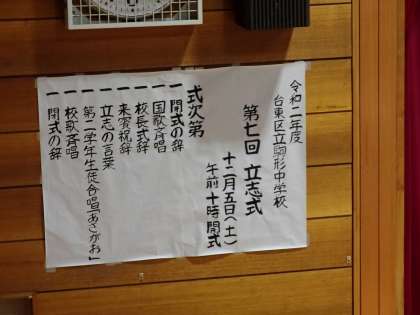 令和二年度
台東区立駒形中学校
第七回 立志式
十二月五日(土)
午前十時開式
式次第
一 開式の辞
一 国歌斉唱
一 校長式辞
一 来賓祝辞
一 立志の言葉
一 第二学年生徒合唱「あさがお」
一 校歌斉唱
一 閉式の辞